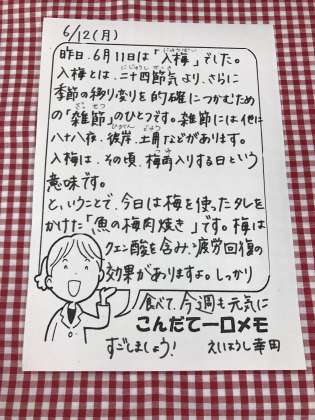 6/12(月)
昨日、6月11日は「入梅」でした。
入梅とは、二十四節気より、さらに
季節の移り変りを的確につかむため
の「雑節」のひとつです。雑節には他に
八十八夜、彼岸、土用などがあります。
入梅は、その頃、梅雨入りする日という
意味です。
と、いうことで、今日は梅を使ったタレを
かけた「魚の梅肉焼き」です。梅は
クエン酸を含み、疲労回復の
効果がありますよ。しっかり
食べて、今週も元気に
こんだて一口メモ
すごしましょう!
えいようし 幸田